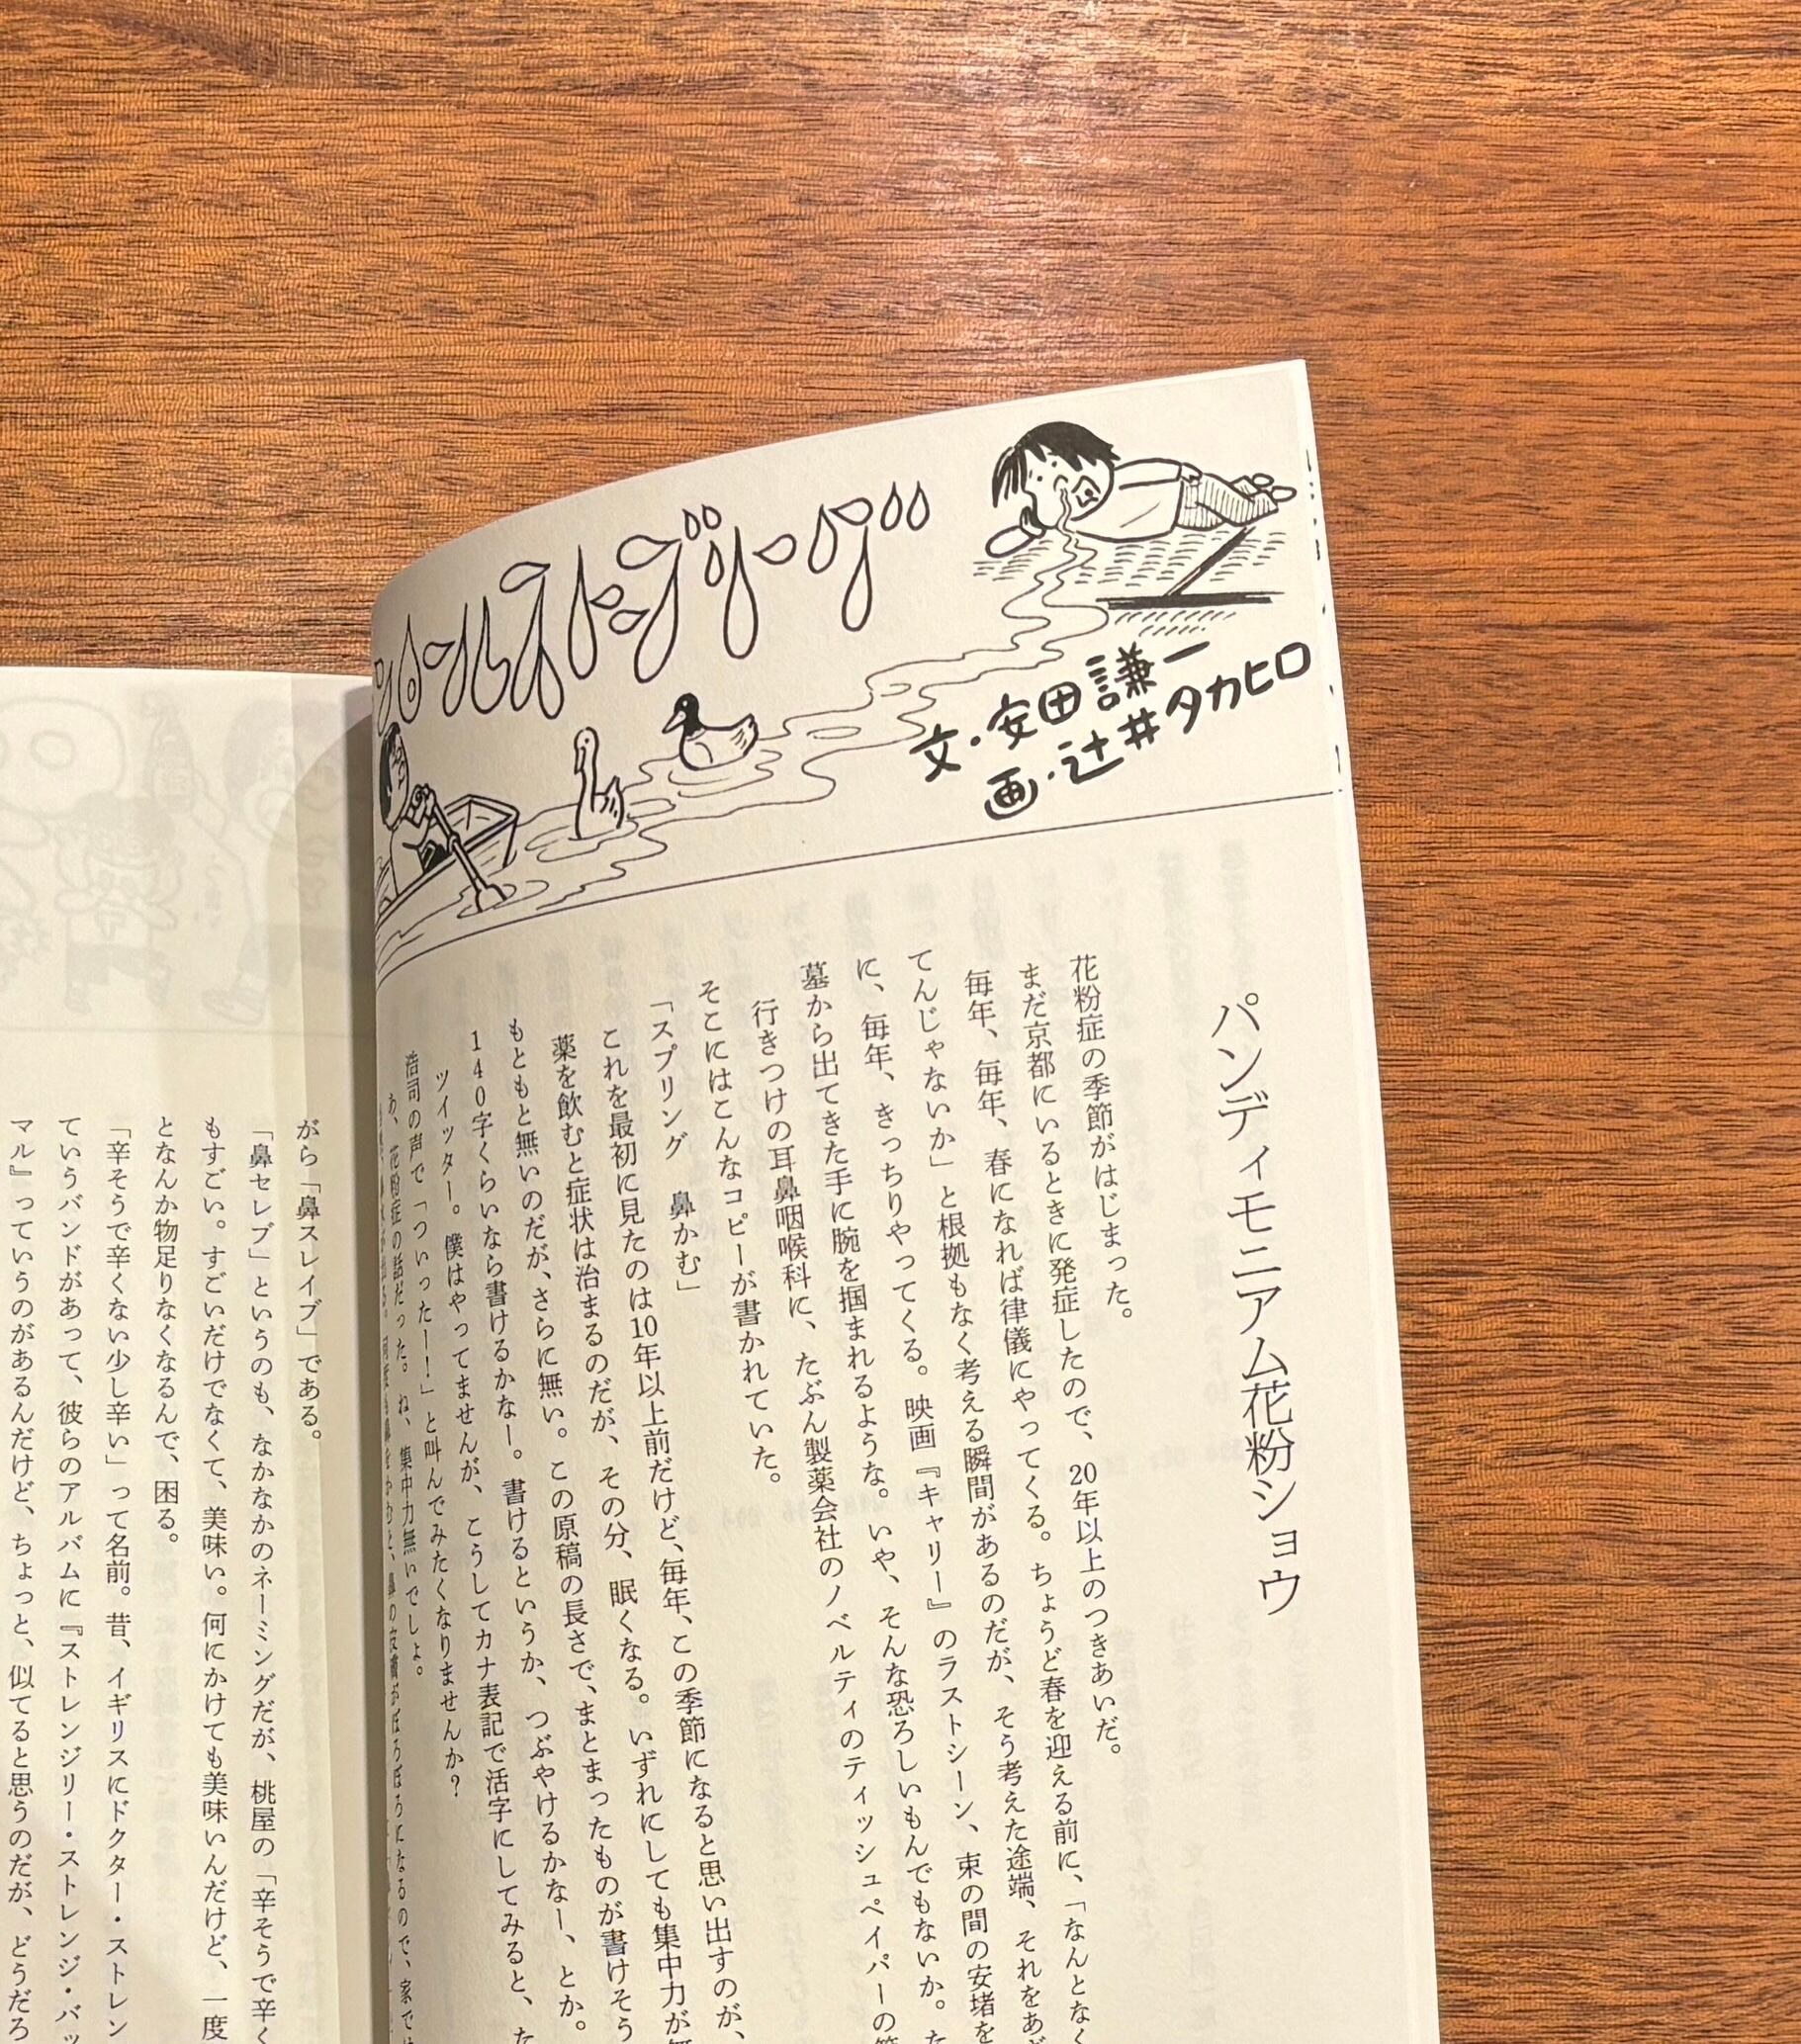 文・安田謙一
画・辻井タカヒロ
パンディモニアム花粉ショウ
花粉症の季節がはじまった。
まだ京都にいるときに発症したので、20年以上のつきあいだ。
毎年、毎年、春になれば律儀にやってくる。ちょうど春を迎える前に、「なんとなく
てんじゃないか」と根拠もなく考える瞬間があるのだが、そう考えた途端、それをあざ
に、毎年、きっちりやってくる。映画『キャリー』のラストシーン、束の間の安堵を
墓から出てきた手に腕を掴まれるような。いや、そんな恐ろしいもんでもないか。た
行きつけの耳鼻咽喉科に、たぶん製薬会社のノベルティのティッシュペイパーの
そこにはこんなコピーが書かれていた。
「スプリング 鼻かむ」
これを最初に見たのは10年以上前だけど、毎年、この季節になると思い出すのが、
薬を飲むと症状は治まるのだが、その分、眠くなる。いずれにしても集中力が
もともと無いのだが、さらに無い。この原稿の長さで、まとまったものが書けそう
140字くらいなら書けるかなー。書けるというか、つぶやけるかなー、とか。
ツイッター。僕はやってませんが、こうしてカナ表記で活字にしてみると、た
浩司の声で「ついったー！」と叫んでみたくなりませんか？
あ、花粉症の話だった。ね、集中力無いでしょ。
がら「鼻スレイブ」である。
「鼻セレブ」というのも、なかなかのネーミングだが、桃屋の「辛そうで辛く
もすごい。すごいだけでなくて、美味い。何にかけても美味いんだけど、一度
となんか物足りなくなるんで、困る。
「辛そうで辛くない少し辛い」って名前。昔、イギリスにドクター・ストレン
ていうバンドがあって、彼らのアルバムに『ストレンジリー・ストレンジ・バッ
マル』っていうのがあるんだけど、ちょっと、似てると思うのだが、どうだろ